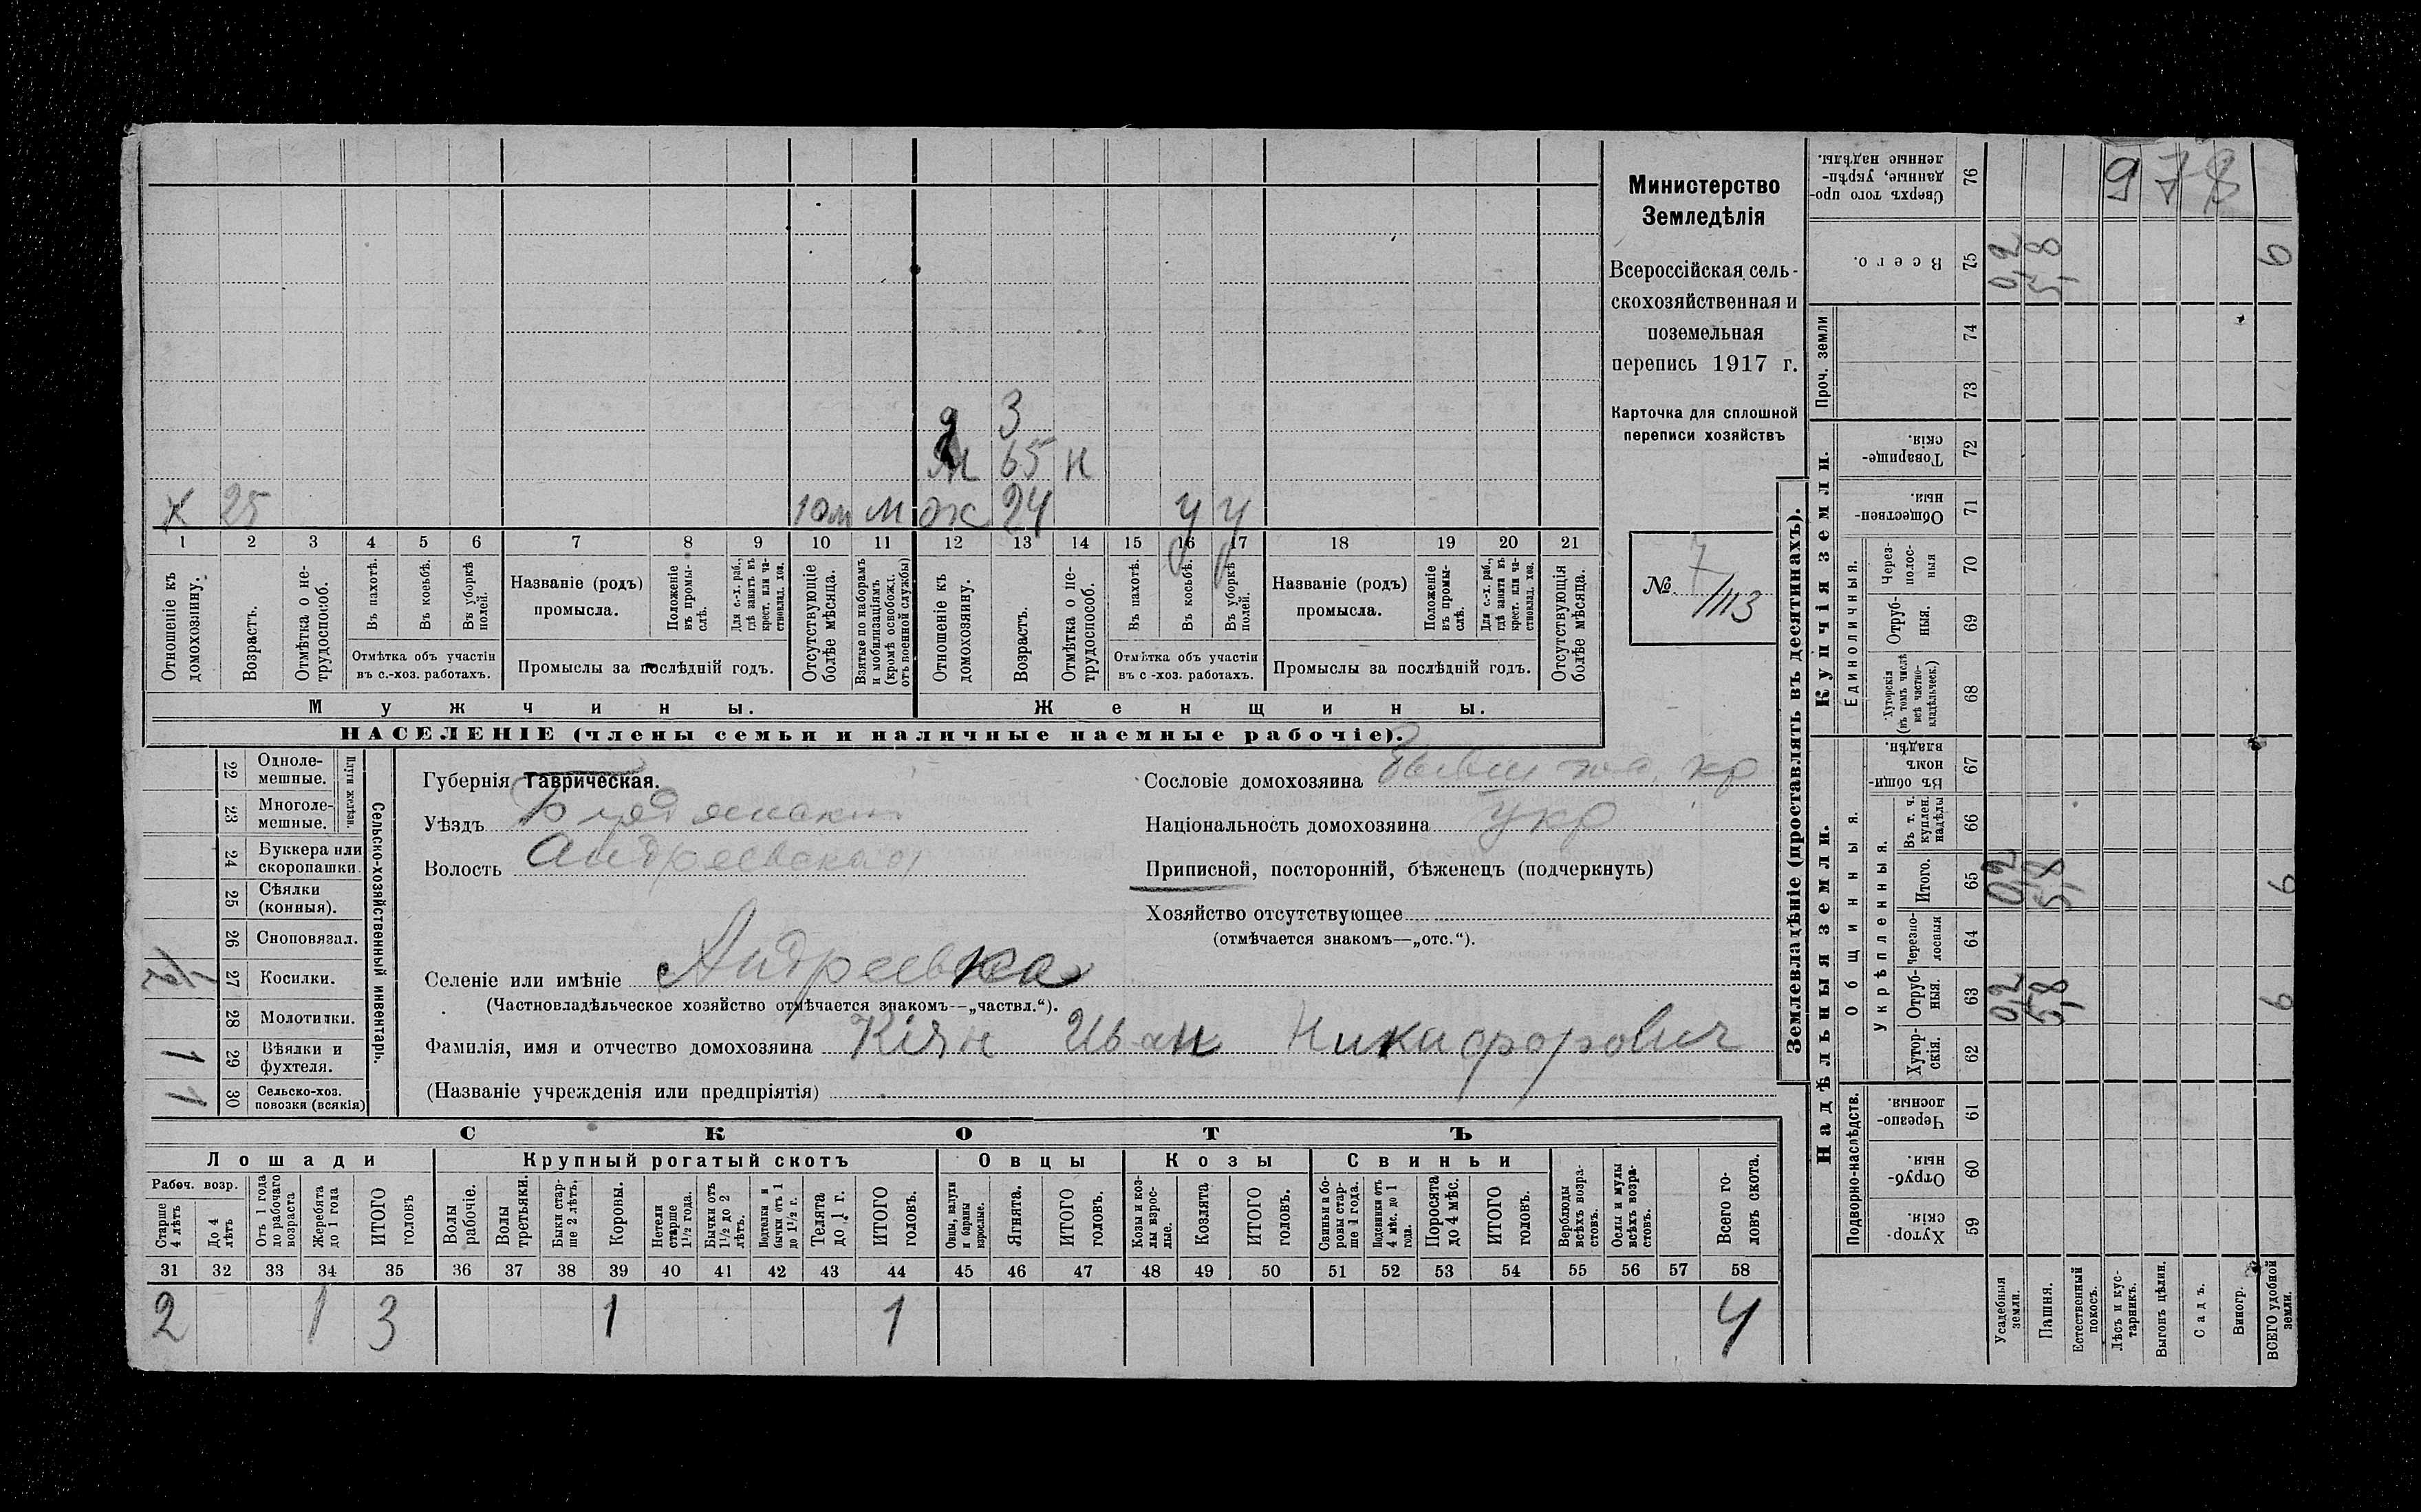 Министерство
Земледѣлія
Всероссійская сель-
скохозяйственная и
поземельная
перепись 1917 г.
Карточка для сплошной
переписи хозяйствъ
№ 7/113
д 3
М 65 н
х 25 10м м ж 24 у у
1 2 3 4 5 6 7 8 9 10 11 12 13 14 15 16 17 18 19 20 21
Отношеніе къ домохозяину.
Возрастъ.
Отмѣтка о не-трудоспособ.
Въ пахотѣ.
Въ косьбѣ.
Въ уборкѣ полей.
Отмѣтка объ участіи въ с.-хоз. работахъ.
Названіе (родъ) промысла.
Положеніе въ промы-слѣ.
Для с.-х. раб., гдѣ занятъ въ крест. или ча-стновлад. хоз.
Промыслы за послѣдній годъ.
Отсутствующіе болѣе мѣсяца.
Взятые по наборамъ и мобилизаціямъ (кромѣ освобожд. отъ военной службы)
Отношеніе къ домохозяину.
Возрастъ.
Отмѣтка о не-трудоспособ.
Въ пахотѣ.
Въ косьбѣ.
Въ уборкѣ полей.
Отмѣтка объ участіи въ с-хоз. работахъ.
Названіе (родъ) промысла.
Положеніе въ промы-слѣ.
Для с.-х. раб., гдѣ занята въ крест. или ча-стновлад. хоз.
Промыслы за послѣдній годъ.
Отсутствующія болѣе мѣсяца.
Мужчины. Женщины.
НАСЕЛЕНІЕ (члены семьи и наличные наемные рабочіе).
Сельско-хозяйственный инвентарь.
Плуги желѣзн.
22 Одноле-мешные.
23 Многоле-мешные.
24 Буккера или скоропашки.
25 Сѣялки (конныя).
26 Сноповязал.
27 Косилки.
28 Молотилки.
1 29 Вѣялки и фухтеля.
1 30 Сельско-хоз. повозки (всякія)
Губернія Таврическая.
Уѣздъ Бердянскій
Волость Андреевская
Сословіе домохозяина бывш гос. кр
Національность домохозяина укр
Приписной, посторонній, бѣженецъ (подчеркнуть)
Хозяйство отсутствующее
(отмѣчается знакомъ—„отс.“).
Селеніе или имѣніе Андреевка
(Частновладѣльческое хозяйство отмѣчается знакомъ—„частвл.“).
Фамилія, имя и отчество домохозяина Кіян Иван Никифорович
(Названіе учрежденія или предпріятія)
СКОТЪ
Лошади Крупный рогатый скотъ Овцы Козы Свиньи
Рабоч. возр.
Старше 4 лѣтъ
До 4 лѣтъ
Отъ 1 года до рабочаго возраста
Жеребята до 1 года
ИТОГО головъ
Волы рабочіе.
Волы третьяки.
Быки стар-ше 2 лѣтъ.
Коровы.
Нетели старше 1½ года.
Бычки отъ 1½ до 2 лѣтъ.
Подтелки и бычки отъ 1 до 1½ г.
Телята до 1 г.
ИТОГО головъ.
Овцы, валухи и бараны взрослые.
Ягнята.
ИТОГО головъ.
Козы и коз-лы взрос-лые.
Козлята
ИТОГО головъ.
Свиньи и бо-ровы стар-ше 1 года.
Подсвинки отъ 4 мѣс. до 1 года.
Поросята до 4 мѣс.
ИТОГО головъ.
Верблюды всѣхъ возра-стовъ.
Ослы и мулы всѣхъ возра-стовъ.
Всего го-ловъ скота.
31 32 33 34 35 36 37 38 39 40 41 42 43 44 45 46 47 48 49 50 51 52 53 54 55 56 57 58
2 1 3 1 1 4
Землевладѣніе (проставлять въ десятинахъ).
Сверхъ того про-данные, укрѣп-ленные надѣлы. 76 978
Всего. 75 0,2 5,8 6
Проч. земли
74
73
Купчія земли.
Товарище-скія. 72
Обществен-ныя. 71
Единоличныя.
Через-полос-ныя 70
Отруб-ныя. 69
Хуторскія (въ томъ числѣ всѣ частно-владѣльческ.) 68
Надѣльныя земли.
Общинныя.
Въ общин-номъ владѣн. 67
Укрѣпленныя.
Въ т. ч. куплен. надѣлы 66
Итого. 65 0,2 5,8 6
Черезпо-лосныя 64
Отруб-ныя. 63 0,2 5,8 6
Хутор-скія. 62
Подворно-наслѣдств.
Черезпо-лосныя. 61
Отруб-ныя. 60
Хутор-скія. 59
Усадебныя земли.
Пашня.
Естественный покосъ.
Лѣсъ и кус-тарникъ.
Выгонъ цѣлин.
Садъ.
Виногр.
ВСЕГО удобной земли.